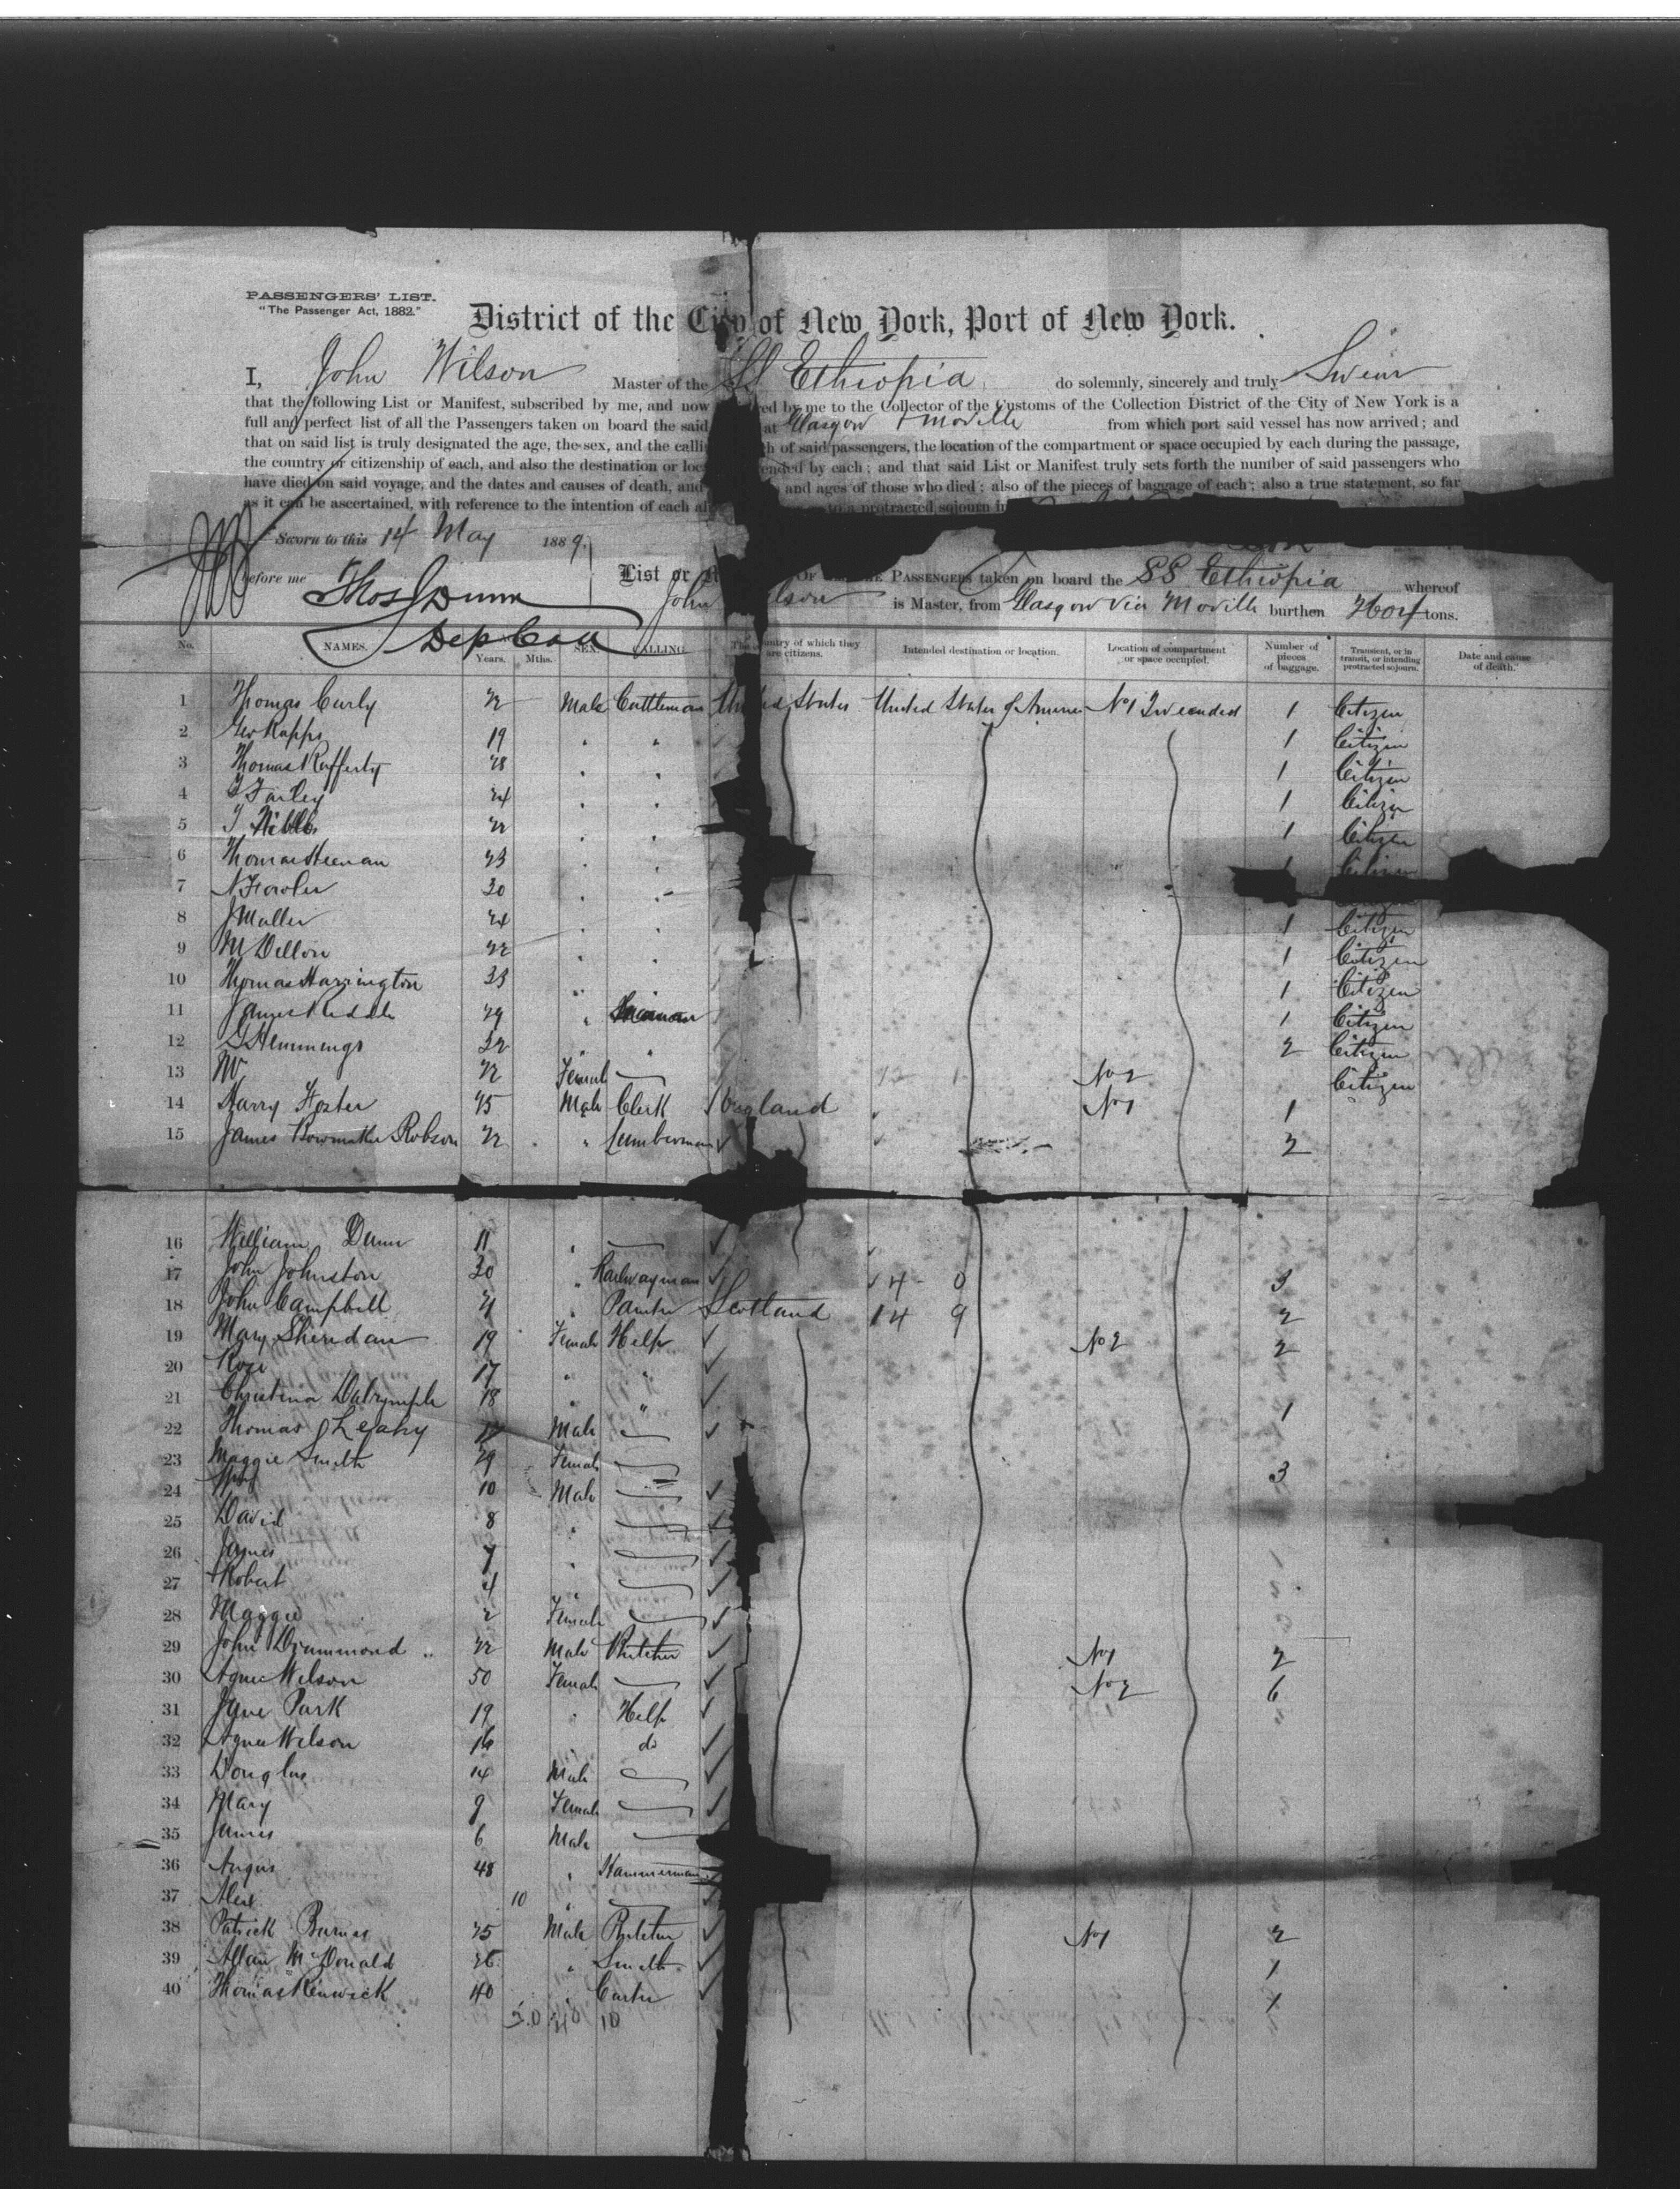 PASSENGERS' LIST.
"The Passenger Act, 1882."
District of the City of New York, Port of New York.
I, John Wilson Master of the SS Ethiopia do solemnly, sincerely and truly Swear
that the following List or Manifest, subscribed by me, and now by me to the Collector of the Customs of the Collection District of the City of New York is a
full and perfect list of all the Passengers taken on board the said at Glasgow & Moville from which port said vessel has now arrived; and
that on said list is truly designated the age, the sex, and the of said passengers, the location of the compartment or space occupied by each during the passage,
the country or citizenship of each, and also the destination or by each; and that said List or Manifest truly sets forth the number of said passengers who
have died on said voyage, and the dates and causes of death, and and ages of those who died; also of the pieces of baggage of each; also a true statement, so far
as it can be ascertained, with reference to the intention of each to a protracted sojourn in
Sworn to this 14 May 1889.
before me Thos Dunn
Dep Coll
List or OF PASSENGERS taken on board the SS Ethiopia whereof
John Wilson is Master, from Glasgow via Moville burthen tons.
No. NAMES. Years. Mths. SEX. CALLING. The country of which they are citizens. Intended destination or location. Location of compartment or space occupied. Number of pieces of baggage. Transient, or in transit, or intending protracted sojourn. Date and cause of death.
1 Thomas Curly 22 Male Cattleman United States United States of America No 1 1 Citizen
2 Geo Kapps 19 " " 1 Citizen
3 Thomas Rafferty 28 " " 1 Citizen
4 Farley 24 " " 1 Citizen
5 22 " " 1 Citizen
6 Thomas Heenan 23 " " 1 Citizen
7 N Fowler 30 " "
8 J Muller 24 " " 1 Citizen
9 M Dillon 22 " " 1 Citizen
10 Thomas Harrington 33 " " 1 Citizen
11 James 29 " 1 Citizen
12 Hemmings 32 " " 2 Citizen
13 22 Female No 2 Citizen
14 Harry Foster 25 Male Clerk England No 1 1
15 James Bowmaker Robson 22 " Lumberman 2
16 William Dunn 11 "
17 John Johnston 30 " Railwayman 14 - 0 3
18 John Campbell 21 " Painter Scotland 14 9 2
19 Mary Sheridan 19 Female Help No 2 2
20 Rose 17 " "
21 Christina Dalrymple 18 " " 1
22 Thomas Leahy Male
23 Maggie Smith 29 Female 3
24 10 Male
25 David 8 "
26 James 7 "
27 Robert 4 "
28 Maggie 2 Female
29 John Drummond 22 Male Butcher No 1 2
30 Agnes Wilson 50 Female No 2 6
31 Jane Park 19 " Help
32 Agnes Wilson 16 " do
33 Douglas 14 Male
34 Mary 9 Female
35 James 6 Male
36 Angus 48 " Hammerman
37 Alex 10 "
38 Patrick Burns 25 Male No 1 2
39 Allan McDonald 26 " Smith 1
40 Thomas Renwick 40 " Carter 1